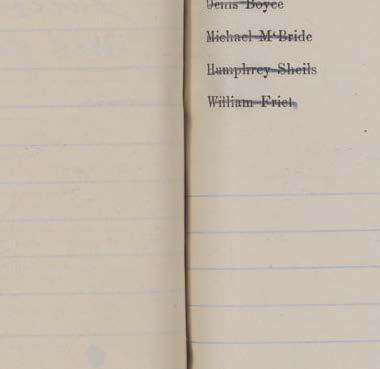 Denis Boyce
Michael M‘Bride
Humphrey Sheils
William Friel